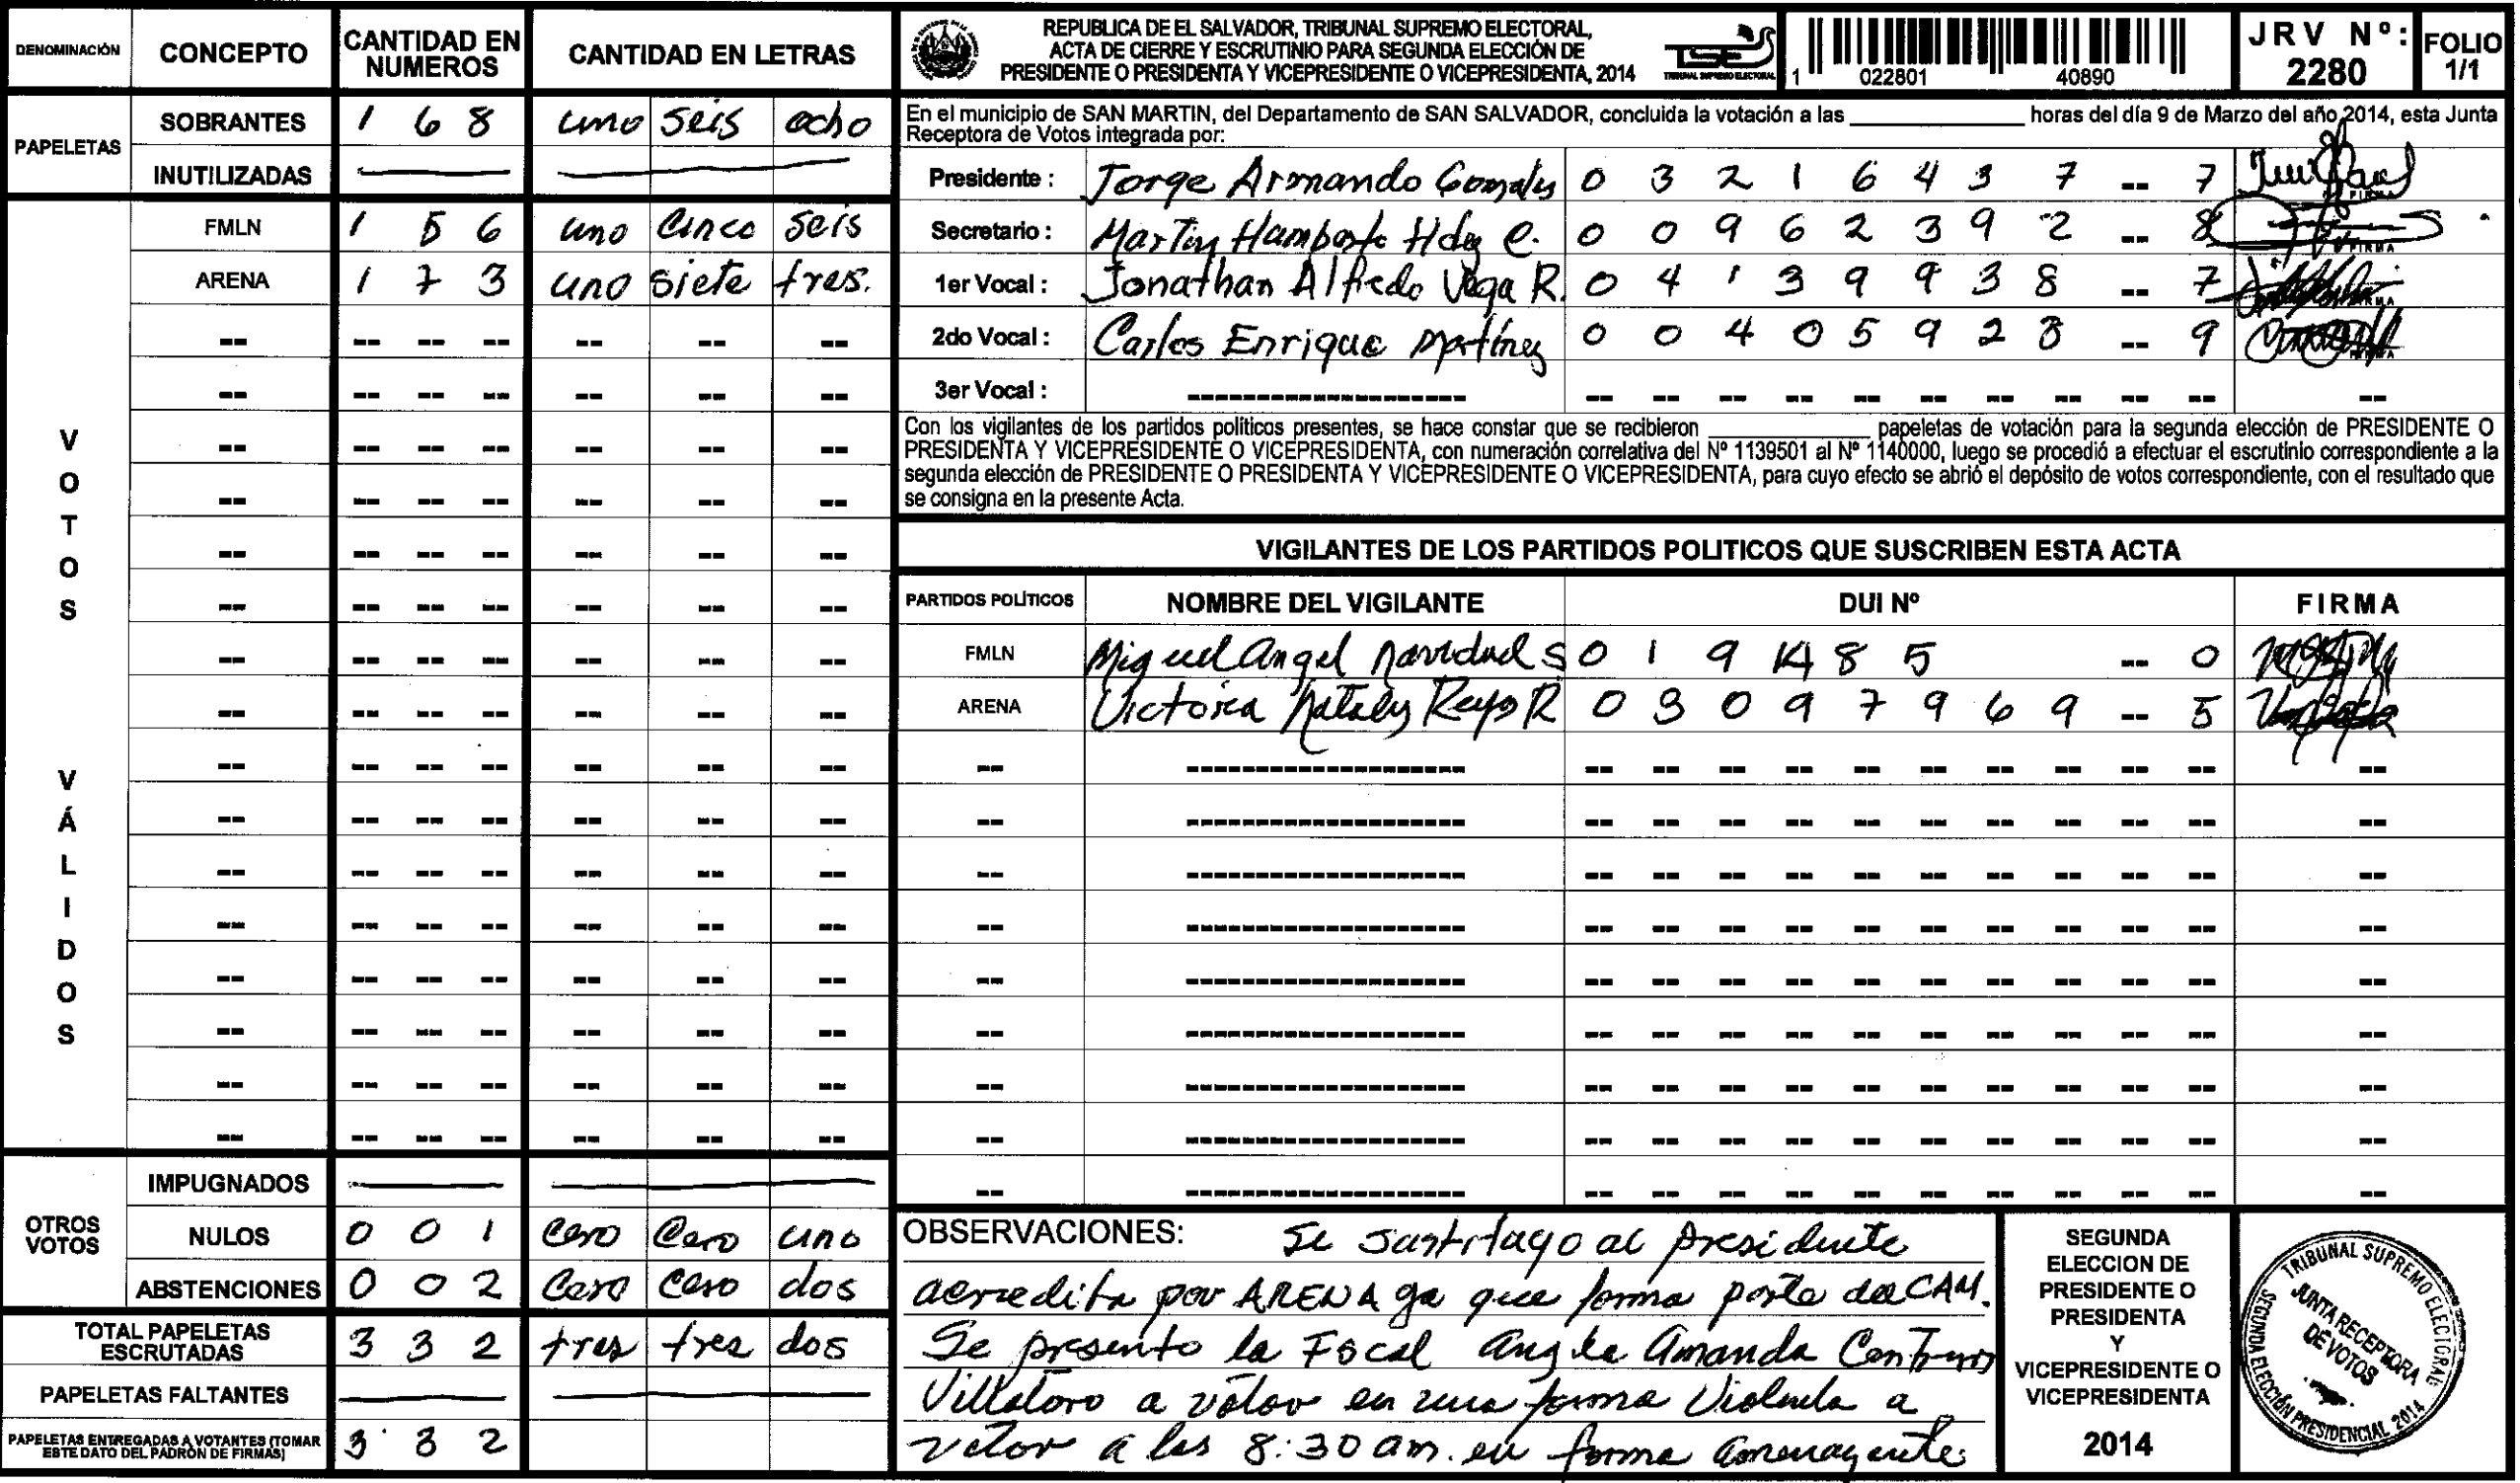 DENOMINACIÓN CONCEPTO CANTIDAD EN NUMEROS CANTIDAD EN LETRAS
PAPELETAS
SOBRANTES 1 6 8 uno seis ocho
INUTILIZADAS
VOTOS VÁLIDOS
FMLN 1 5 6 uno cinco seis
ARENA 1 7 3 uno siete tres.
OTROS VOTOS
IMPUGNADOS
NULOS 0 0 1 cero cero uno
ABSTENCIONES 0 0 2 cero cero dos
TOTAL PAPELETAS ESCRUTADAS 3 3 2 tres tres dos
PAPELETAS FALTANTES
PAPELETAS ENTREGADAS A VOTANTES (TOMAR ESTE DATO DEL PADRÓN DE FIRMAS) 3 3 2
REPUBLICA DE EL SALVADOR, TRIBUNAL SUPREMO ELECTORAL,
ACTA DE CIERRE Y ESCRUTINIO PARA SEGUNDA ELECCIÓN DE
PRESIDENTE O PRESIDENTA Y VICEPRESIDENTE O VICEPRESIDENTA, 2014
TSE
TRIBUNAL SUPREMO ELECTORAL
1 022801 40890
JRV Nº: 2280
FOLIO 1/1
En el municipio de SAN MARTIN, del Departamento de SAN SALVADOR, concluida la votación a las ____ horas del día 9 de Marzo del año 2014, esta Junta
Receptora de Votos integrada por:
Presidente : Jorge Armando 0 3 2 1 6 4 3 7 -- 7 FIRMA
Secretario : Martin Humberto Hdez C. 0 0 9 6 2 3 9 2 -- 8 FIRMA
1er Vocal : Jonathan Alfredo Vega R. 0 4 1 3 9 9 3 8 -- 7 FIRMA
2do Vocal : Carlos Enrique Martínez 0 0 4 0 5 9 2 8 -- 9
3er Vocal :
Con los vigilantes de los partidos políticos presentes, se hace constar que se recibieron ____ papeletas de votación para la segunda elección de PRESIDENTE O
PRESIDENTA Y VICEPRESIDENTE O VICEPRESIDENTA, con numeración correlativa del Nº 1139501 al Nº 1140000, luego se procedió a efectuar el escrutinio correspondiente a la
segunda elección de PRESIDENTE O PRESIDENTA Y VICEPRESIDENTE O VICEPRESIDENTA, para cuyo efecto se abrió el depósito de votos correspondiente, con el resultado que
se consigna en la presente Acta.
VIGILANTES DE LOS PARTIDOS POLITICOS QUE SUSCRIBEN ESTA ACTA
PARTIDOS POLÍTICOS NOMBRE DEL VIGILANTE DUI Nº FIRMA
FMLN Miguel Angel Navidad S 0 1 9 14 8 5 -- 0
ARENA Victoria Nataly Reyes R 0 3 0 9 7 9 6 9 -- 5
OBSERVACIONES: Se sustituyo al presidente
acredita por ARENA ya que forma parte del CAM.
Se presento la Fiscal Angela Amanda
Villatoro a votar en una forma Violenta a
votar a las 8:30 am. en forma amenazante.
SEGUNDA
ELECCION DE
PRESIDENTE O
PRESIDENTA
Y
VICEPRESIDENTE O
VICEPRESIDENTA
2014
TRIBUNAL SUPREMO ELECTORAL
JUNTA RECEPTORA
DE VOTOS
SEGUNDA ELECCIÓN PRESIDENCIAL 2014